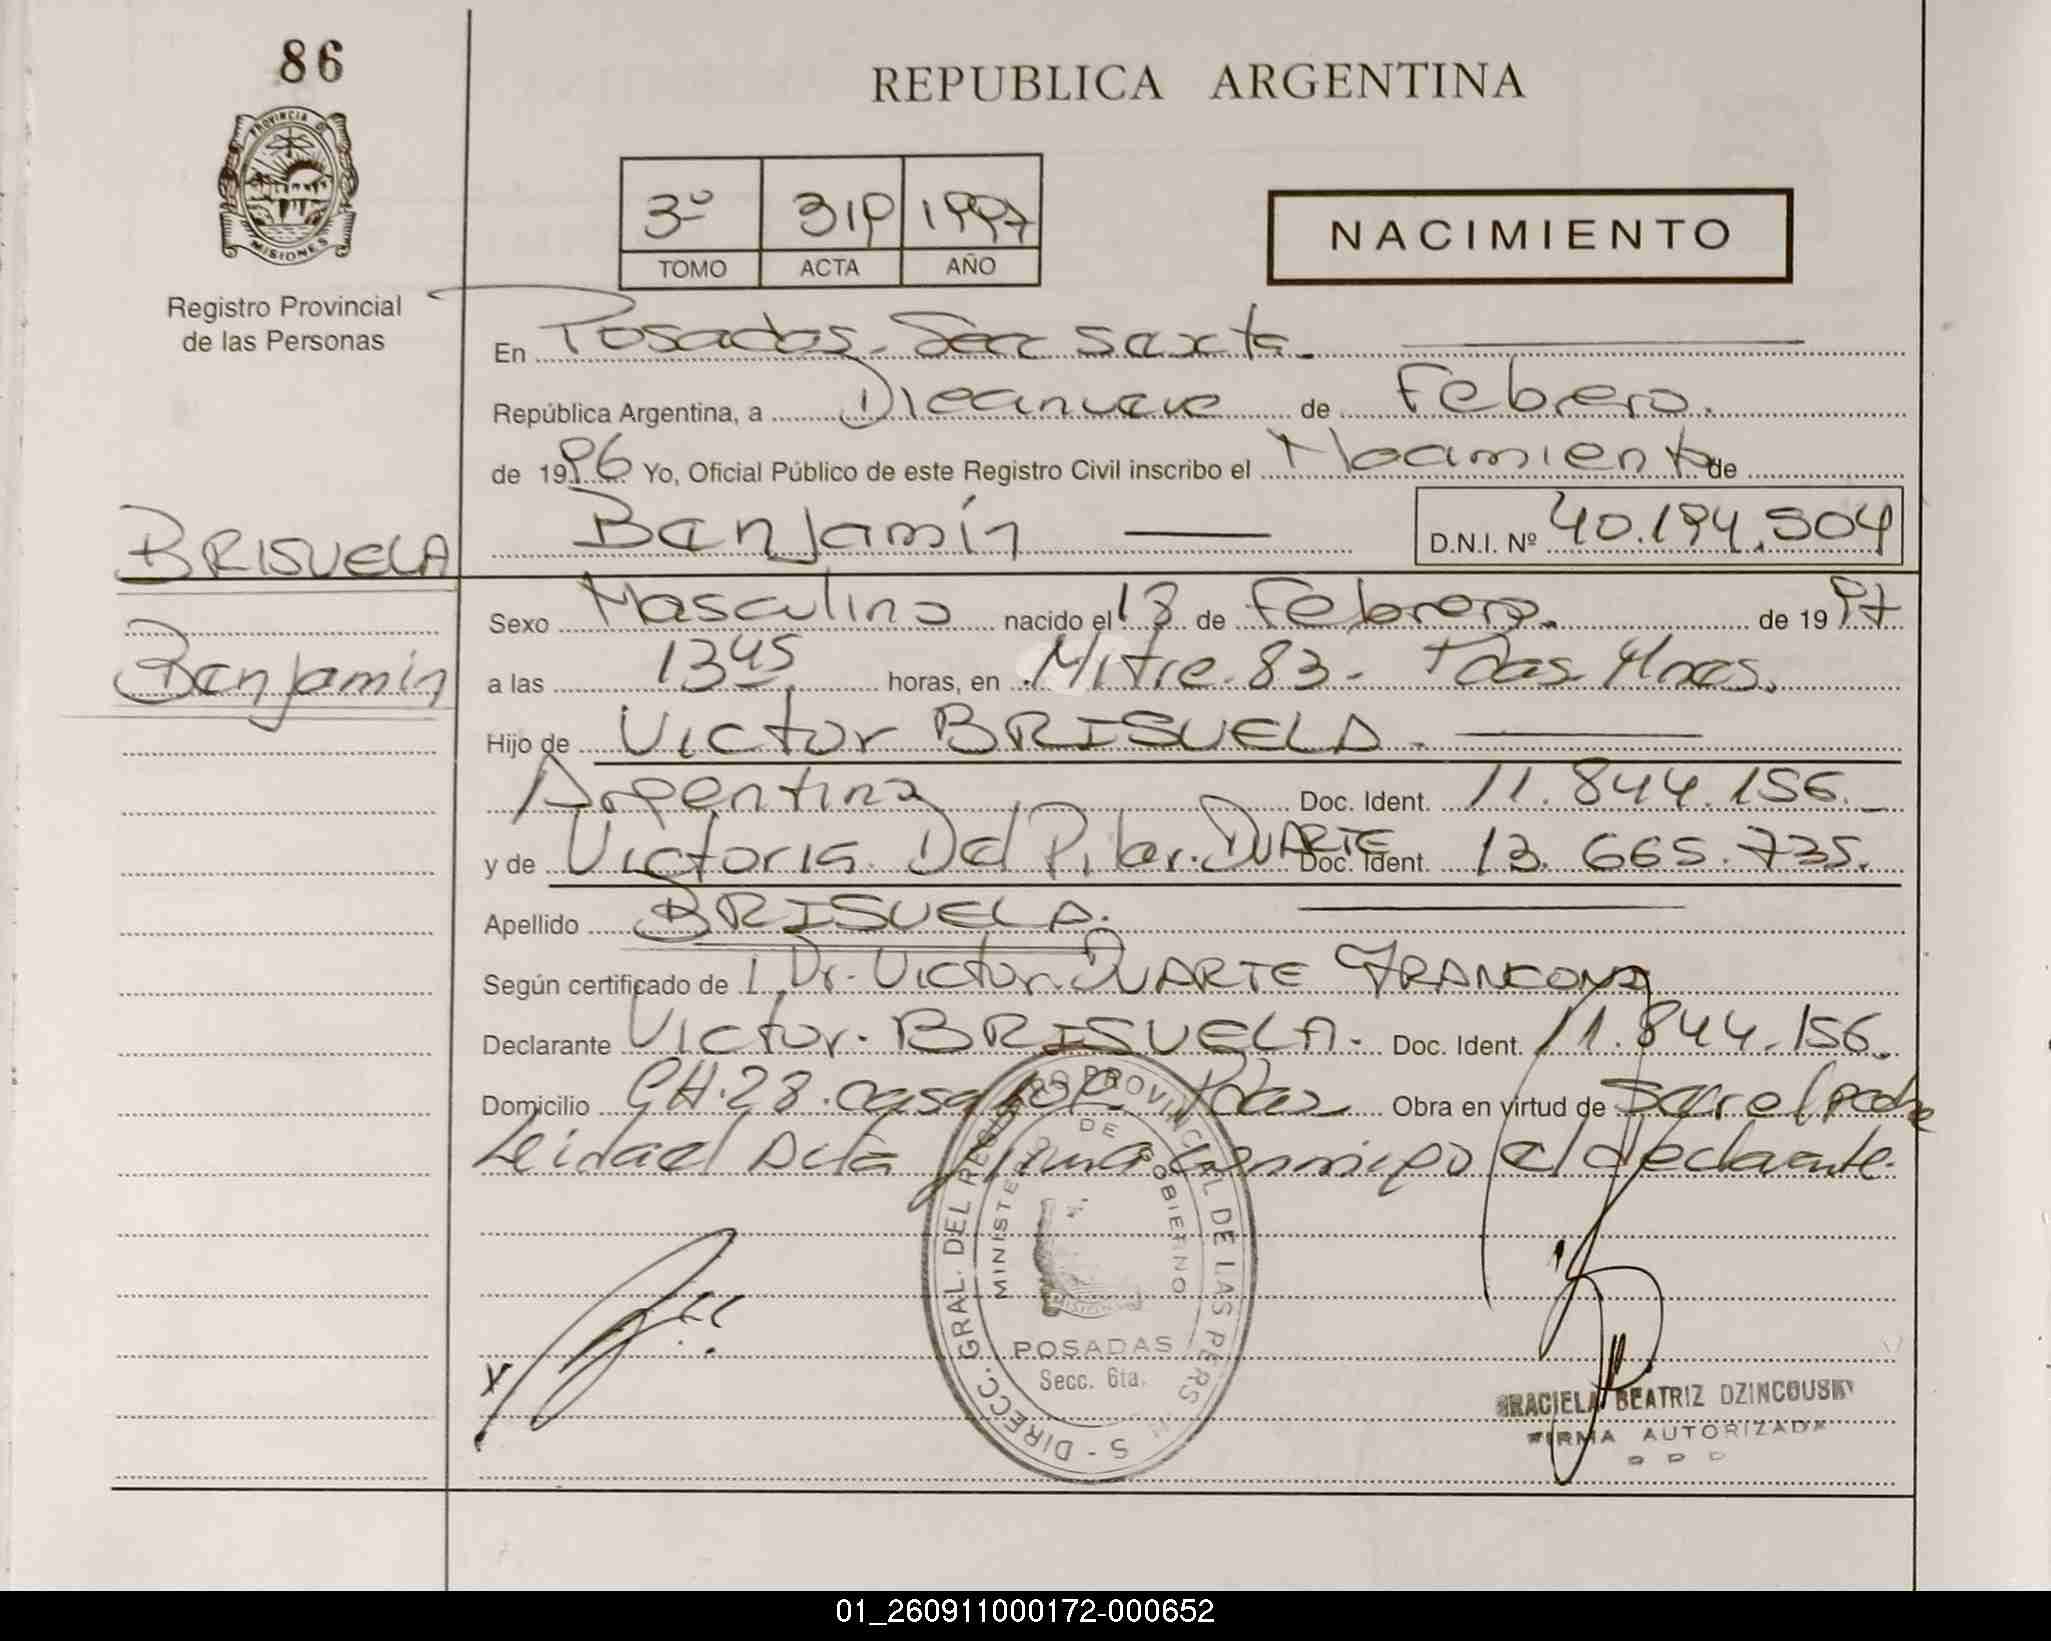 86
REPUBLICA ARGENTINA
PROVINCIA D
MISIONES
Registro Provincial
de las Personas
3º 319 1997
TOMO ACTA AÑO
NACIMIENTO
En Posadas. Secc sexta.
República Argentina, a Diecinueve de Febrero.
de 1996 Yo, Oficial Público de este Registro Civil inscribo el Nacimiento de
Benjamín D.N.I. Nº 40.194.504
BRISUELA
Benjamín
Sexo Masculino nacido el 13 de Febrero. de 1997
a las 13 45 horas, en Mitre. 83 - Pdas. Mnes.
Hijo de Victor BRISUELA.
Argentina Doc. Ident. 11.844.156.
y de Victoria Del Pilar. DUARTE Doc. Ident. 13.665.735.
Apellido BRISUELA.
Según certificado de Dr. Victor DUARTE
Declarante Victor. BRISUELA. Doc. Ident. 11.844.156.
Domicilio CH. 28. casa Pdas Obra en virtud de ser el padre
Leida el Acta firma conmigo el declarante.
DIRECC. GRAL. DEL REGISTRO PROVINCIAL DE LAS PERS
MINISTERIO DE GOBIERNO
MISIONES
POSADAS
Secc. 6ta.
X
GRACIELA BEATRIZ DZINCOUSKY
FIRMA AUTORIZADA
01_260911000172-000652